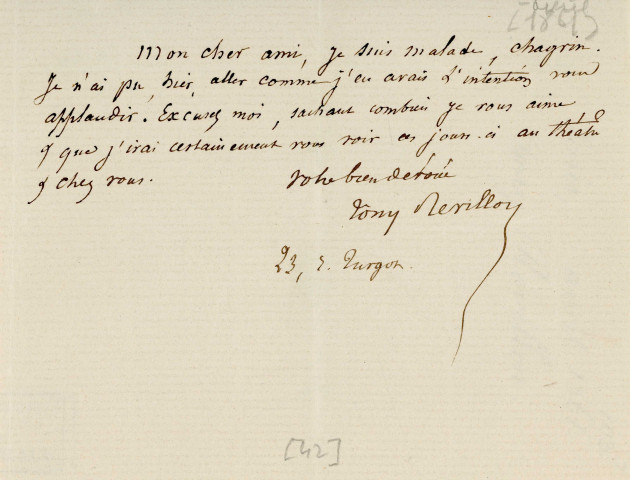 Mon cher ami, je suis malade, chagrin.
Je n'ai pu, hier, aller comme j'en avais l'intention vous
applaudir. Excusez moi, sachant combien je vous aime
& que j'irai certainement vous voir ces jours-ci au théâtre
& chez vous.
Votre bien dévoué
Tony Revillon
23, r. Turgot.
[42]